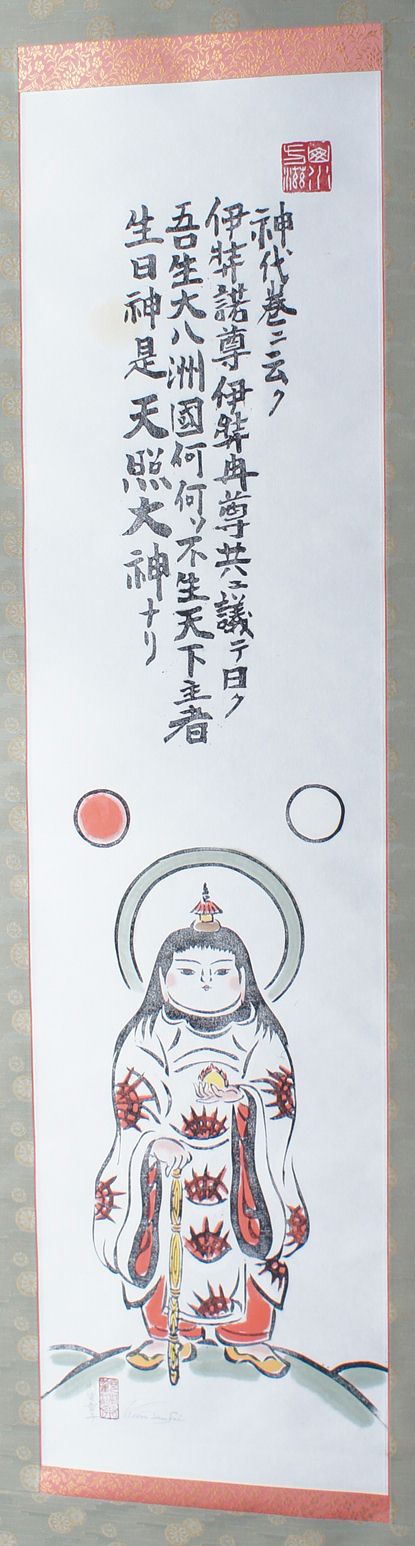 神代巻ニ云ク
伊弉諾尊伊弉冉尊共ニ議テ曰ク
吾生大八洲國何何ソ不生天下主者
生日神是天照大神ナリ